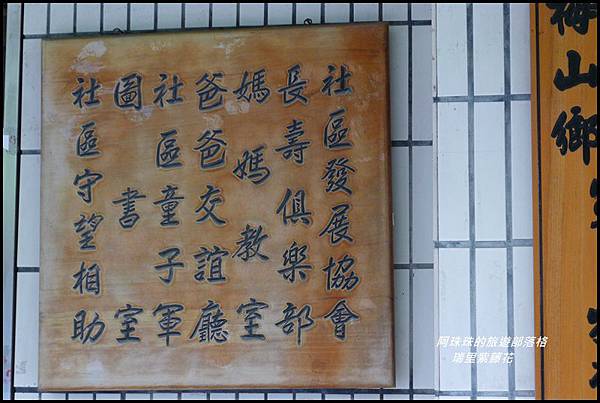 社區發展協會
長壽俱樂部
媽媽教室
爸爸交誼廳
社區童子軍
圖書室
社區守望相助
梅山鄉
阿珠珠的旅遊部落格
瑞里紫藤花